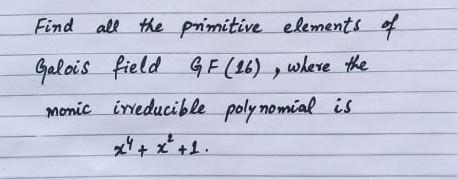 Find all the primitive elements of
Galois field GF(16), where the
monic irreducible polynomial is
x⁴ + x² + 1.